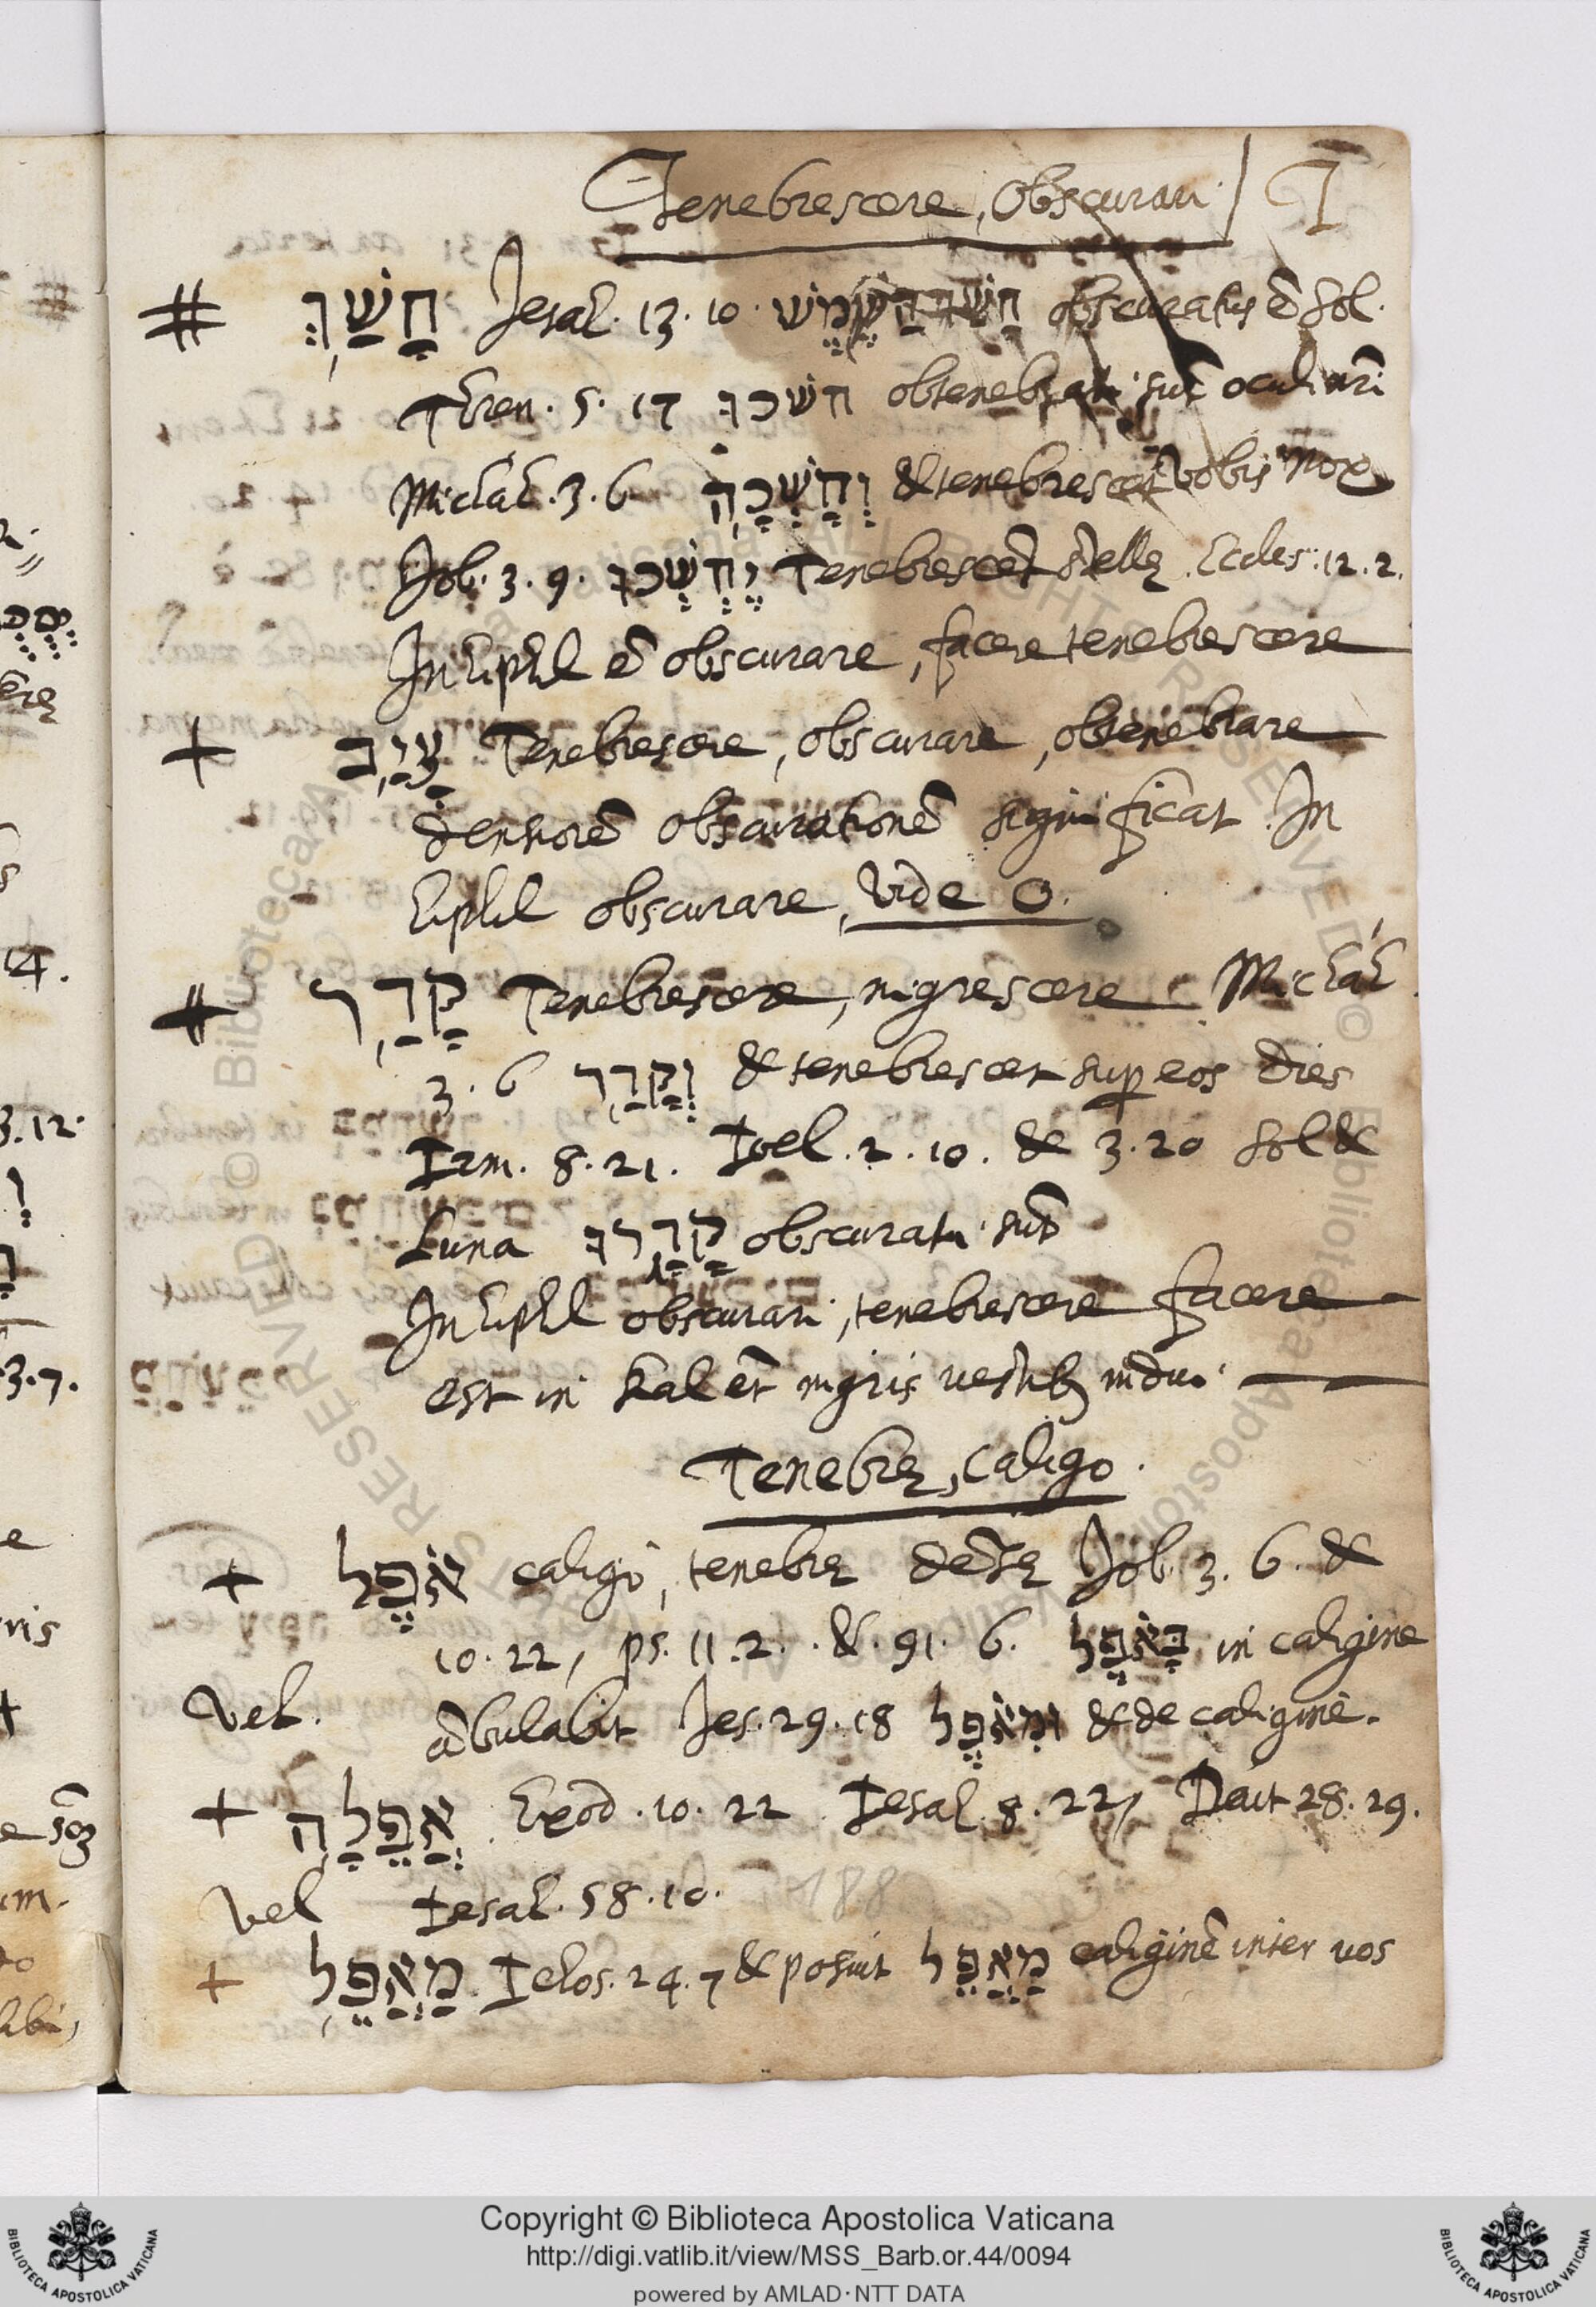 Tenebrescere, Obscurari T
# חָשַׁךְ Jesah. 13. 10. חָשַׁךְ הַשֶּׁמֶשׁ obscuratus ē sol.
Thren. 5. 17 חשכו obtenebrati sūt oculi nr̄i
Michah. 3. 6 וְחָשְׁכָה & tenebrescet vobis nox
Job. 3. 9. יֶחְשְׁכוּ Tenebrescēt stellę. Eccles. 12. 2.
In hiphil ē obscurare, facere tenebrescere
+ עָיַב Tenebrescere, obscurare, obtenebrare
densiorē obscurationē significat. In
hiphil obscurare, vide O.
# קָדַר Tenebrescere, nigrescere Michah
3. 6 וְקָדַר & tenebrescet sup eos dies
Irm. 8. 21. Ioel. 2. 10. & 3. 20 sol &
Luna קָדָרוּ obscurati sūt
In hiphil obscurari, tenebrescere facere
est in kal et̄ nigris vestibꝫ indui
Tenebrę, caligo.
+ אֹפֶל caligo, tenebrę dēsę Job. 3. 6. &
10. 22, ps. 11. 2. & 91. 6. בָּאֹפֶל in caligine
Vel. ābulabit Jes. 29. 18 וּמֵאֹפֶל & de caligine.
+ אֲפֵלָה Exod. 10. 22 Iesah. 8. 22, Deut 28. 29.
Vel Iesah. 58. 10.
+ מַאֲפֵל. Iehos. 24. 7 & posuit מַאֲפֵל caliginē inter vos
Copyright © Biblioteca Apostolica Vaticana
http://digi.vatlib.it/view/MSS_Barb.or.44/0094
powered by AMLAD·NTT DATA